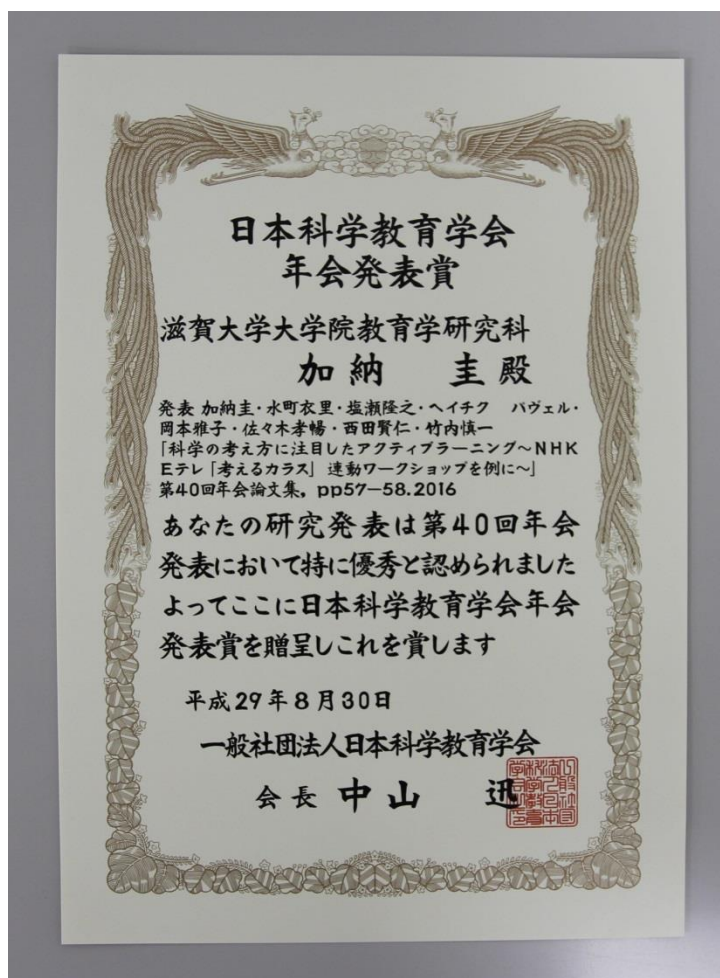 日本科学教育学会
年会発表賞
滋賀大学大学院教育学研究科
加納 圭 殿
発表 加納圭・水町衣里・塩瀬隆之・ヘイチク パヴェル・
岡本雅子・佐々木孝暢・西田賢仁・竹内慎一
「科学の考え方に注目したアクティブラーニング～NHK
Eテレ「考えるカラス」連動ワークショップを例に～」
第40回年会論文集，pp57－58.2016
あなたの研究発表は第40回年会
発表において特に優秀と認められました
よってここに日本科学教育学会年会
発表賞を贈呈しこれを賞します
平成29年8月30日
一般社団法人日本科学教育学会
会長 中山 迅